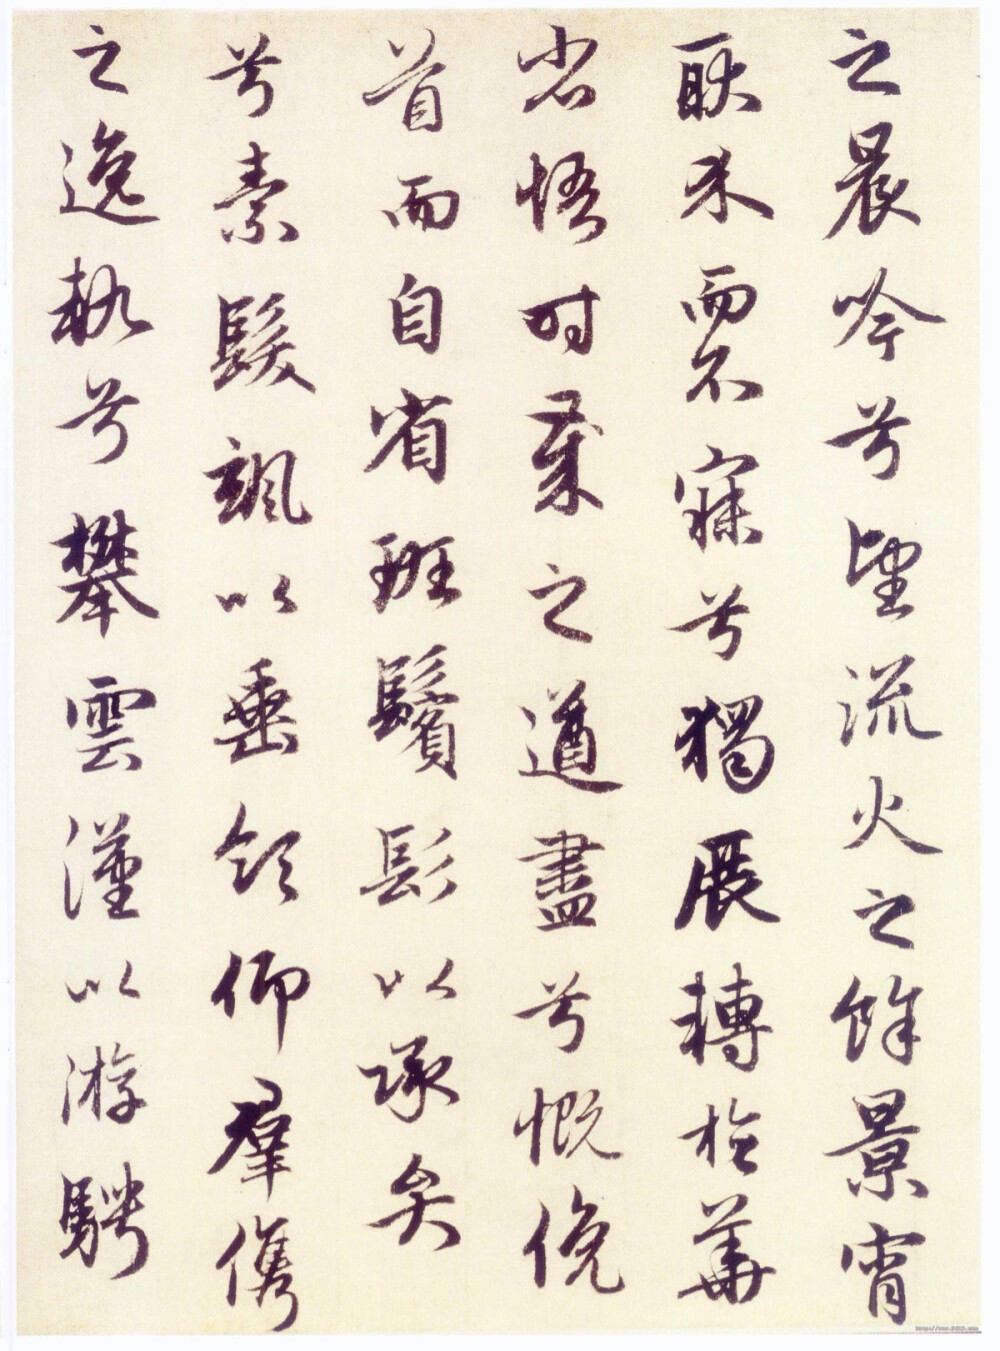 之晨吟兮望流火之餘景宵
耿耿而不寐兮獨展轉於華
省悟時歲之遒盡兮慨俛
首而自省班鬢髟以承弁
兮素髮颯以垂領仰羣儁
之逸軌兮攀雲漢以游騁